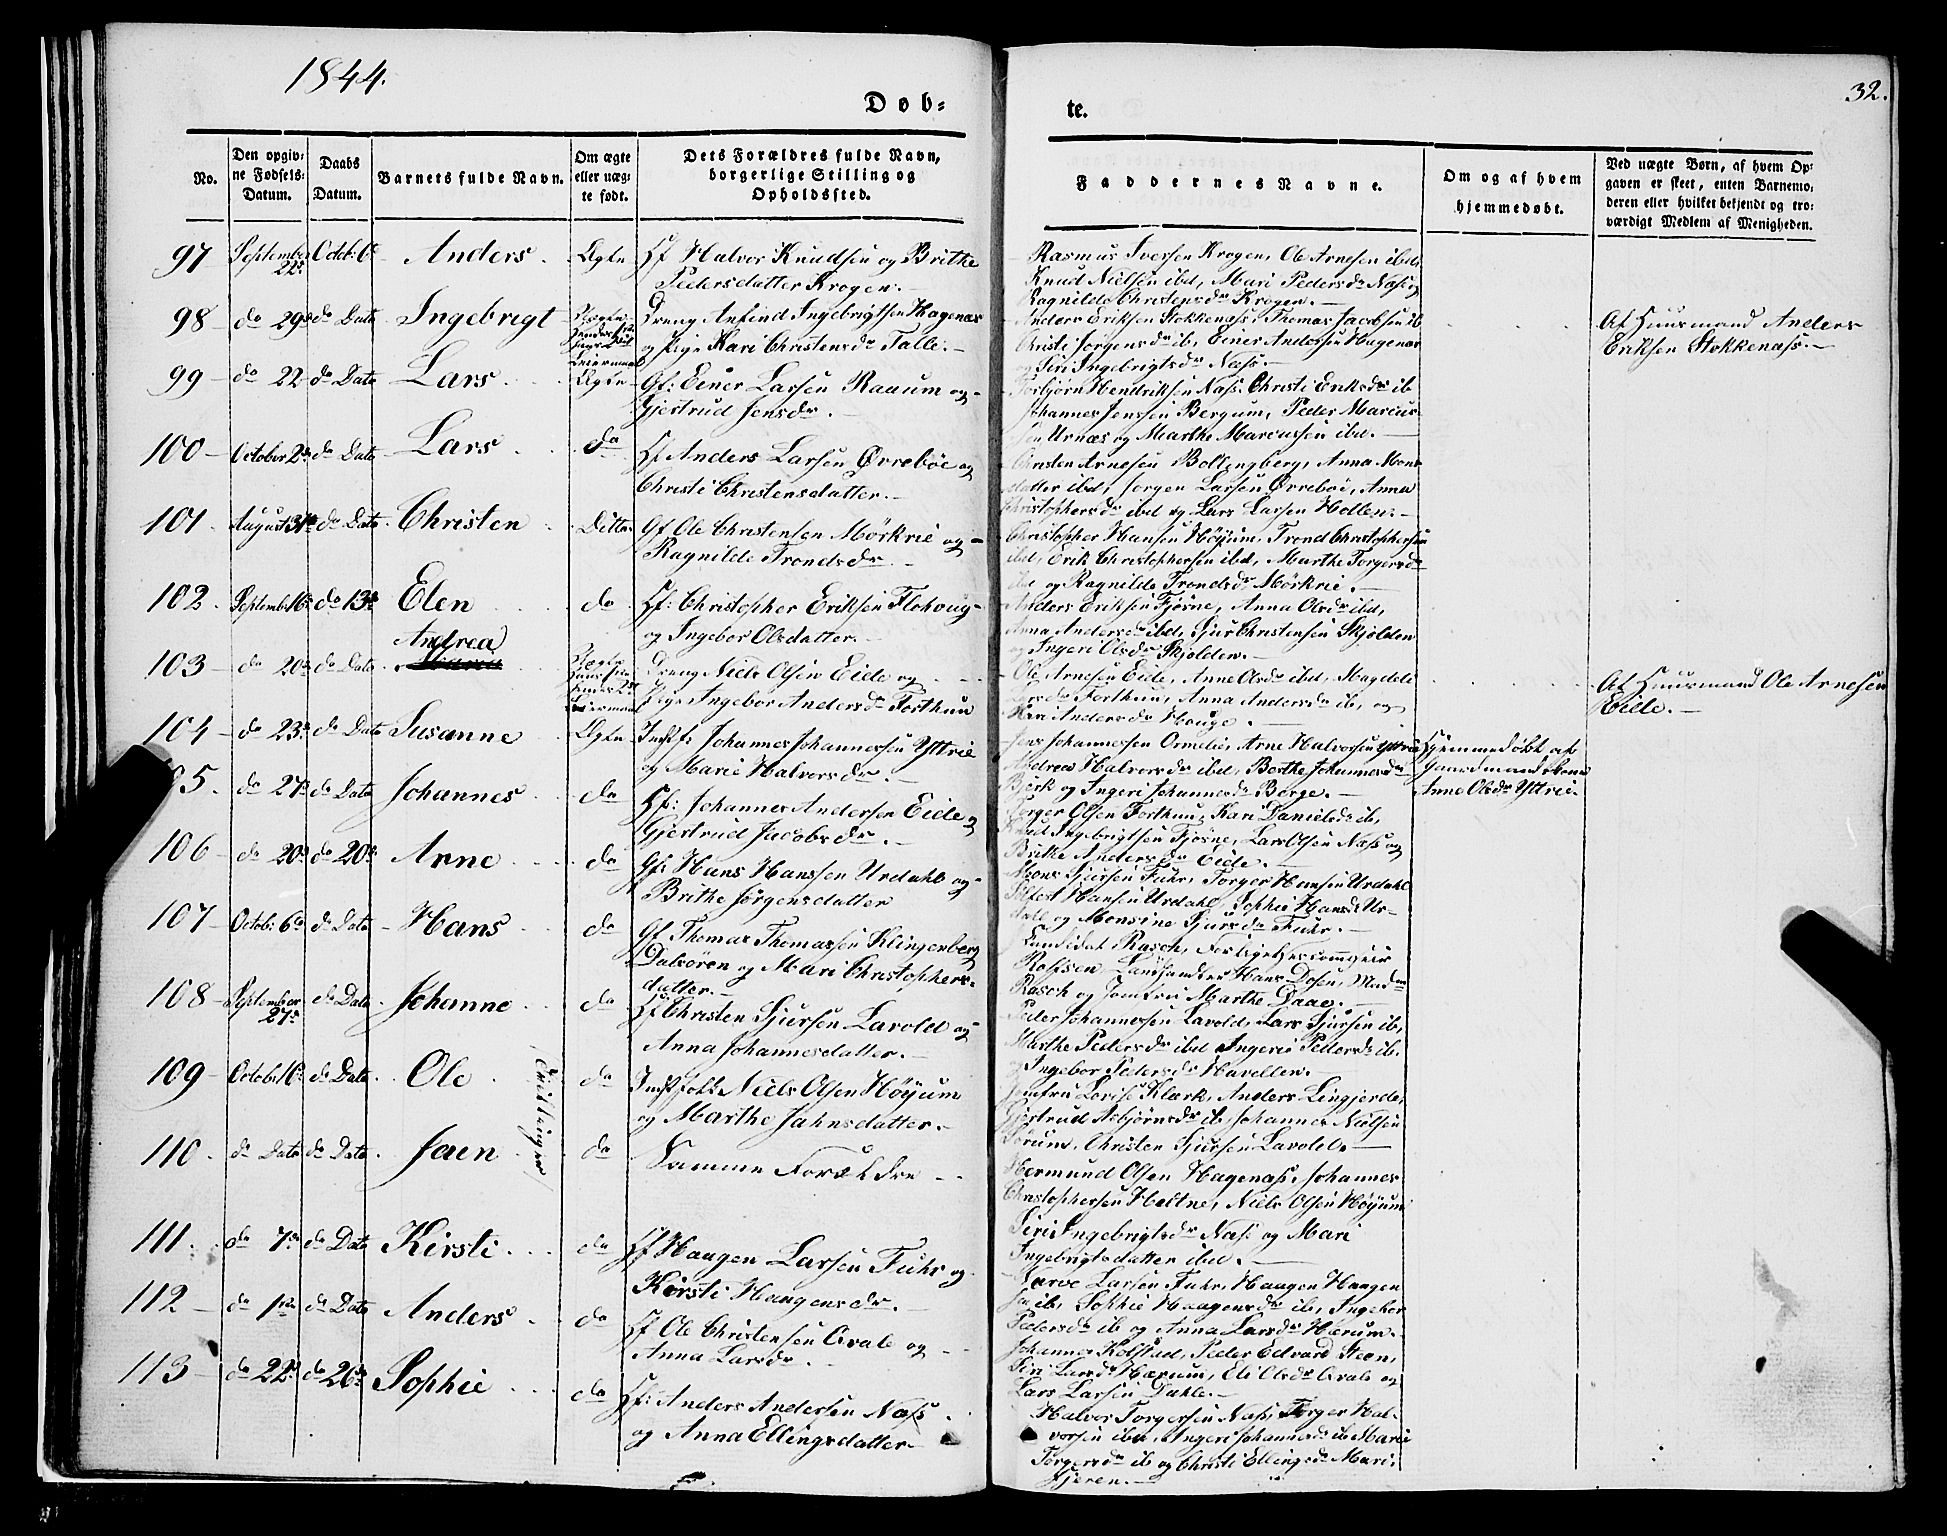 1844.
Døb-
te.
32.
No.
Den opgiv-
ne Fødsels-
Datum.
Daabs
Datum.
Barnets fulde Navn.
Om ægte
eller uæg-
te født.
Dets Forældres fulde Navn,
borgerlige Stilling og
Opholdssted.
Faddernes Navne.
Om og af hvem
hjemmedøbt.
Ved uægte Børn, af hvem Op-
gaven er skeet, enten Barnemo-
deren eller hvilket bekjendt og tro-
værdigt Medlem af Menigheden.
97 September 22de Octob: 6te Anders Ægte Hf Halvor Knudsen og Brithe
Pedersdatter Krogen.
Rasmus Iversen Krogen, Ole Arnesen ibd,
Knud Nielsen ibd, Mari Pedersdr Næss og
Ragnilde Christensdr Krogen.
98 do 29de do Dato Ingebrigt Uægte Dreng Anfind Ingebrigtsen Hagenæs
og Pige Kari Christensdr Talle.
Anders Eriksen Stokkenæss, Thomas Jacobsen ib
Christi Jørgensdr ib, Einer Andersen Hagenæs
og Siri Ingebrigtsdr Næss
Af Huusmand Anders
Eriksen Stokkenæss.
99 do 22 do Dato Lars Ægte Gf: Einer Larsen Raaum og
Gjertrud Jensdr.
Torbjørn Hendriksen Næss, Christi Eriksdr ib
Johannes Jensen Bergum, Peder Marcus-
sen Urnæs og Marthe Marcussen ibd.
100 October 2de do Dato Lars do Hf Anders Larsen Ørrebøe og
Christi Christensdatter.
Christen Arnesen Bollingberg, Anna Mons
datter ibd, Jørgen Larsen Ørrebøe, Anna
Christophersdr ibd og Lars Larsen Hollen.
101 August 31te do Dato Christen Ditto Gf Ole Christensen Mørkrie og
Ragnilde Trondsdr
Christopher Hansen Høyum, Trond Christophersen
ibd, Erik Christophersen ibd, Marthe Torgersdr
ibd og Ragnilde Trondsdr Mørkrie.
102 Septemb: 16de do 13de Elen do Hf: Christopher Eriksen Flohoug
og Ingebor Olsdatter.
Anders Eriksen Fjøsne, Anna Olsdr ibd,
Anna Andersdr ibd, Sjur Christensen Skjolden
og Ingeri Olsdr Skjolden.
103 do 20de do Dato Andrea Uægte Dreng Niels Olsen Eide og
Pige Ingebor Andersdr Forthun
Ole Arnesen Eide, Anne Olsdr ibd, Magdeli
Forthun, Anna Andersdr ib, og
Kari Andersdr Houge.
Af Huusmand Ole Arnesen
Eide.
104 do 23de do Dato Susanne Ægte Indstf: Johannes Johannessen Yttrie
og Marie Halvorsdr.
Jens Johannessen Ormelie, Arne Halvorsen Yttrie
Andrea Halvorsdr ibd, Berthe Johannesdr
Bjørk og Ingeri Johannesdr Berge.
Hjemmedøbt af
Gaardmandskone
Anne Olsdr Yttrie.
05. do 27de do Dato Johannes do Hf: Johannes Andersen Eide og
Gjertrud Jacobsdr.
Torger Olsen Forthun, Kari Danielsdr ib,
Knud Ingebrigtsen Fjøsne, Lars Olsen Næss og
Brithe Andersdr Eide.
106 do 20de do 20de Arne do Gf: Hans Hanssen Urdahl og
Brithe Jørgensdatter
Mons Sjursen Fuhr, Torger Hansen Urdahl
Hansen Urdahl, Sophie Hansdr Ur-
dahl og Monsine Sjursdr Fuhr.
107 Octob: 6te do Dato Hans do Gf Thomas Thomassen Klingenberg
Dalsøren og Mari Christophers-
datter.
Candidat Rasch, Forligelsescommissair
Rolfsen Landhandler Hans Dosen, Madm
Rasch og Jomfru Marthe Daae.
108 September 27de do Dato Johanne do Hf Christen Sjursen Lavold og
Anna Johannesdatter.
Peder Johannessen Lavold, Lars Sjursen ib,
Marthe Pedersdr ibd Ingerie Pedersdr ib.
og Ingebor Pedersdr Havellen.
109 Octob: 10de do Dato Ole Tvillinger do Indstfolk Niels Olsen Høyum
og Marthe Jahnsdatter.
Jomfru Lovise Klærk, Anders Lingjerde,
Gjertrud Asbjørnsdr ib, Johannes Nielsen
Sørum, Christen Sjursen Lavold.
110. do Dato do Dato Jaen do Samme Forældre
Hermund Olsen Hagenæss, Johannes
Christophersen Heltne, Niels Olsen Høyum
Siri Ingebrigtsdr Næss og Mari
Ingebrigtsdatter ibd.
111. do 7de do Dato Kirsti do Hf Haagen Larsen Fuhr og
Kirsti Haagensdr.
Larsen Fuhr, Haagen Haagen-
sen ib, Sophie Haagensdr ib, Ingebor
Pedersdr ib og Anna Larsdr Hærum.
112 do 1ste do Dato Anders do Hf Ole Christensen Qvale og
Anna Larsdr.
Johannes Kolstad, Peder Edvard Steen,
Siri Larsdr Hærum, Eli Olsdr Qvale og
Lars Larsen Dahle.
113 do 22de do 26de Sophie do Hf: Anders Andersen Næss
og Anna Ellingsdatter
Halvor Torgersen Næss, Torger Hal-
vorsen ibd, Ingeri Johannesdr ib Mari
Torgersdr ib og Christi Ellingsdr Mari-
fjæren.